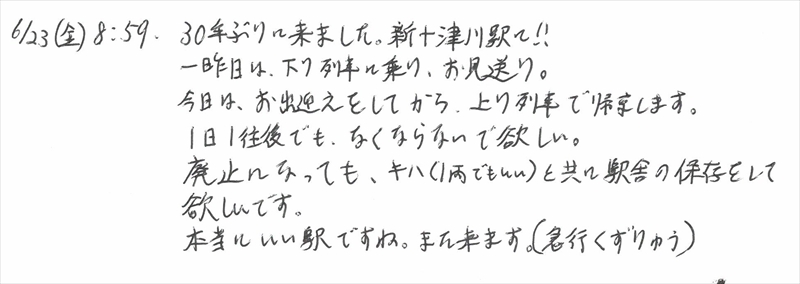 6/23(金) 8:59. 30年ぶりに来ました。新十津川駅に!!
一昨日は、下り列車に乗り、お見送り。
今日は、お出迎えをしてから、上り列車で帰京します。
1日1往後でも、なくならないで欲しい。
廃止になっても、キハ(1両でもいい)と共に駅舎の保存をして
欲しいです。
本当にいい駅ですね。また来ます。(急行くずりゅう)